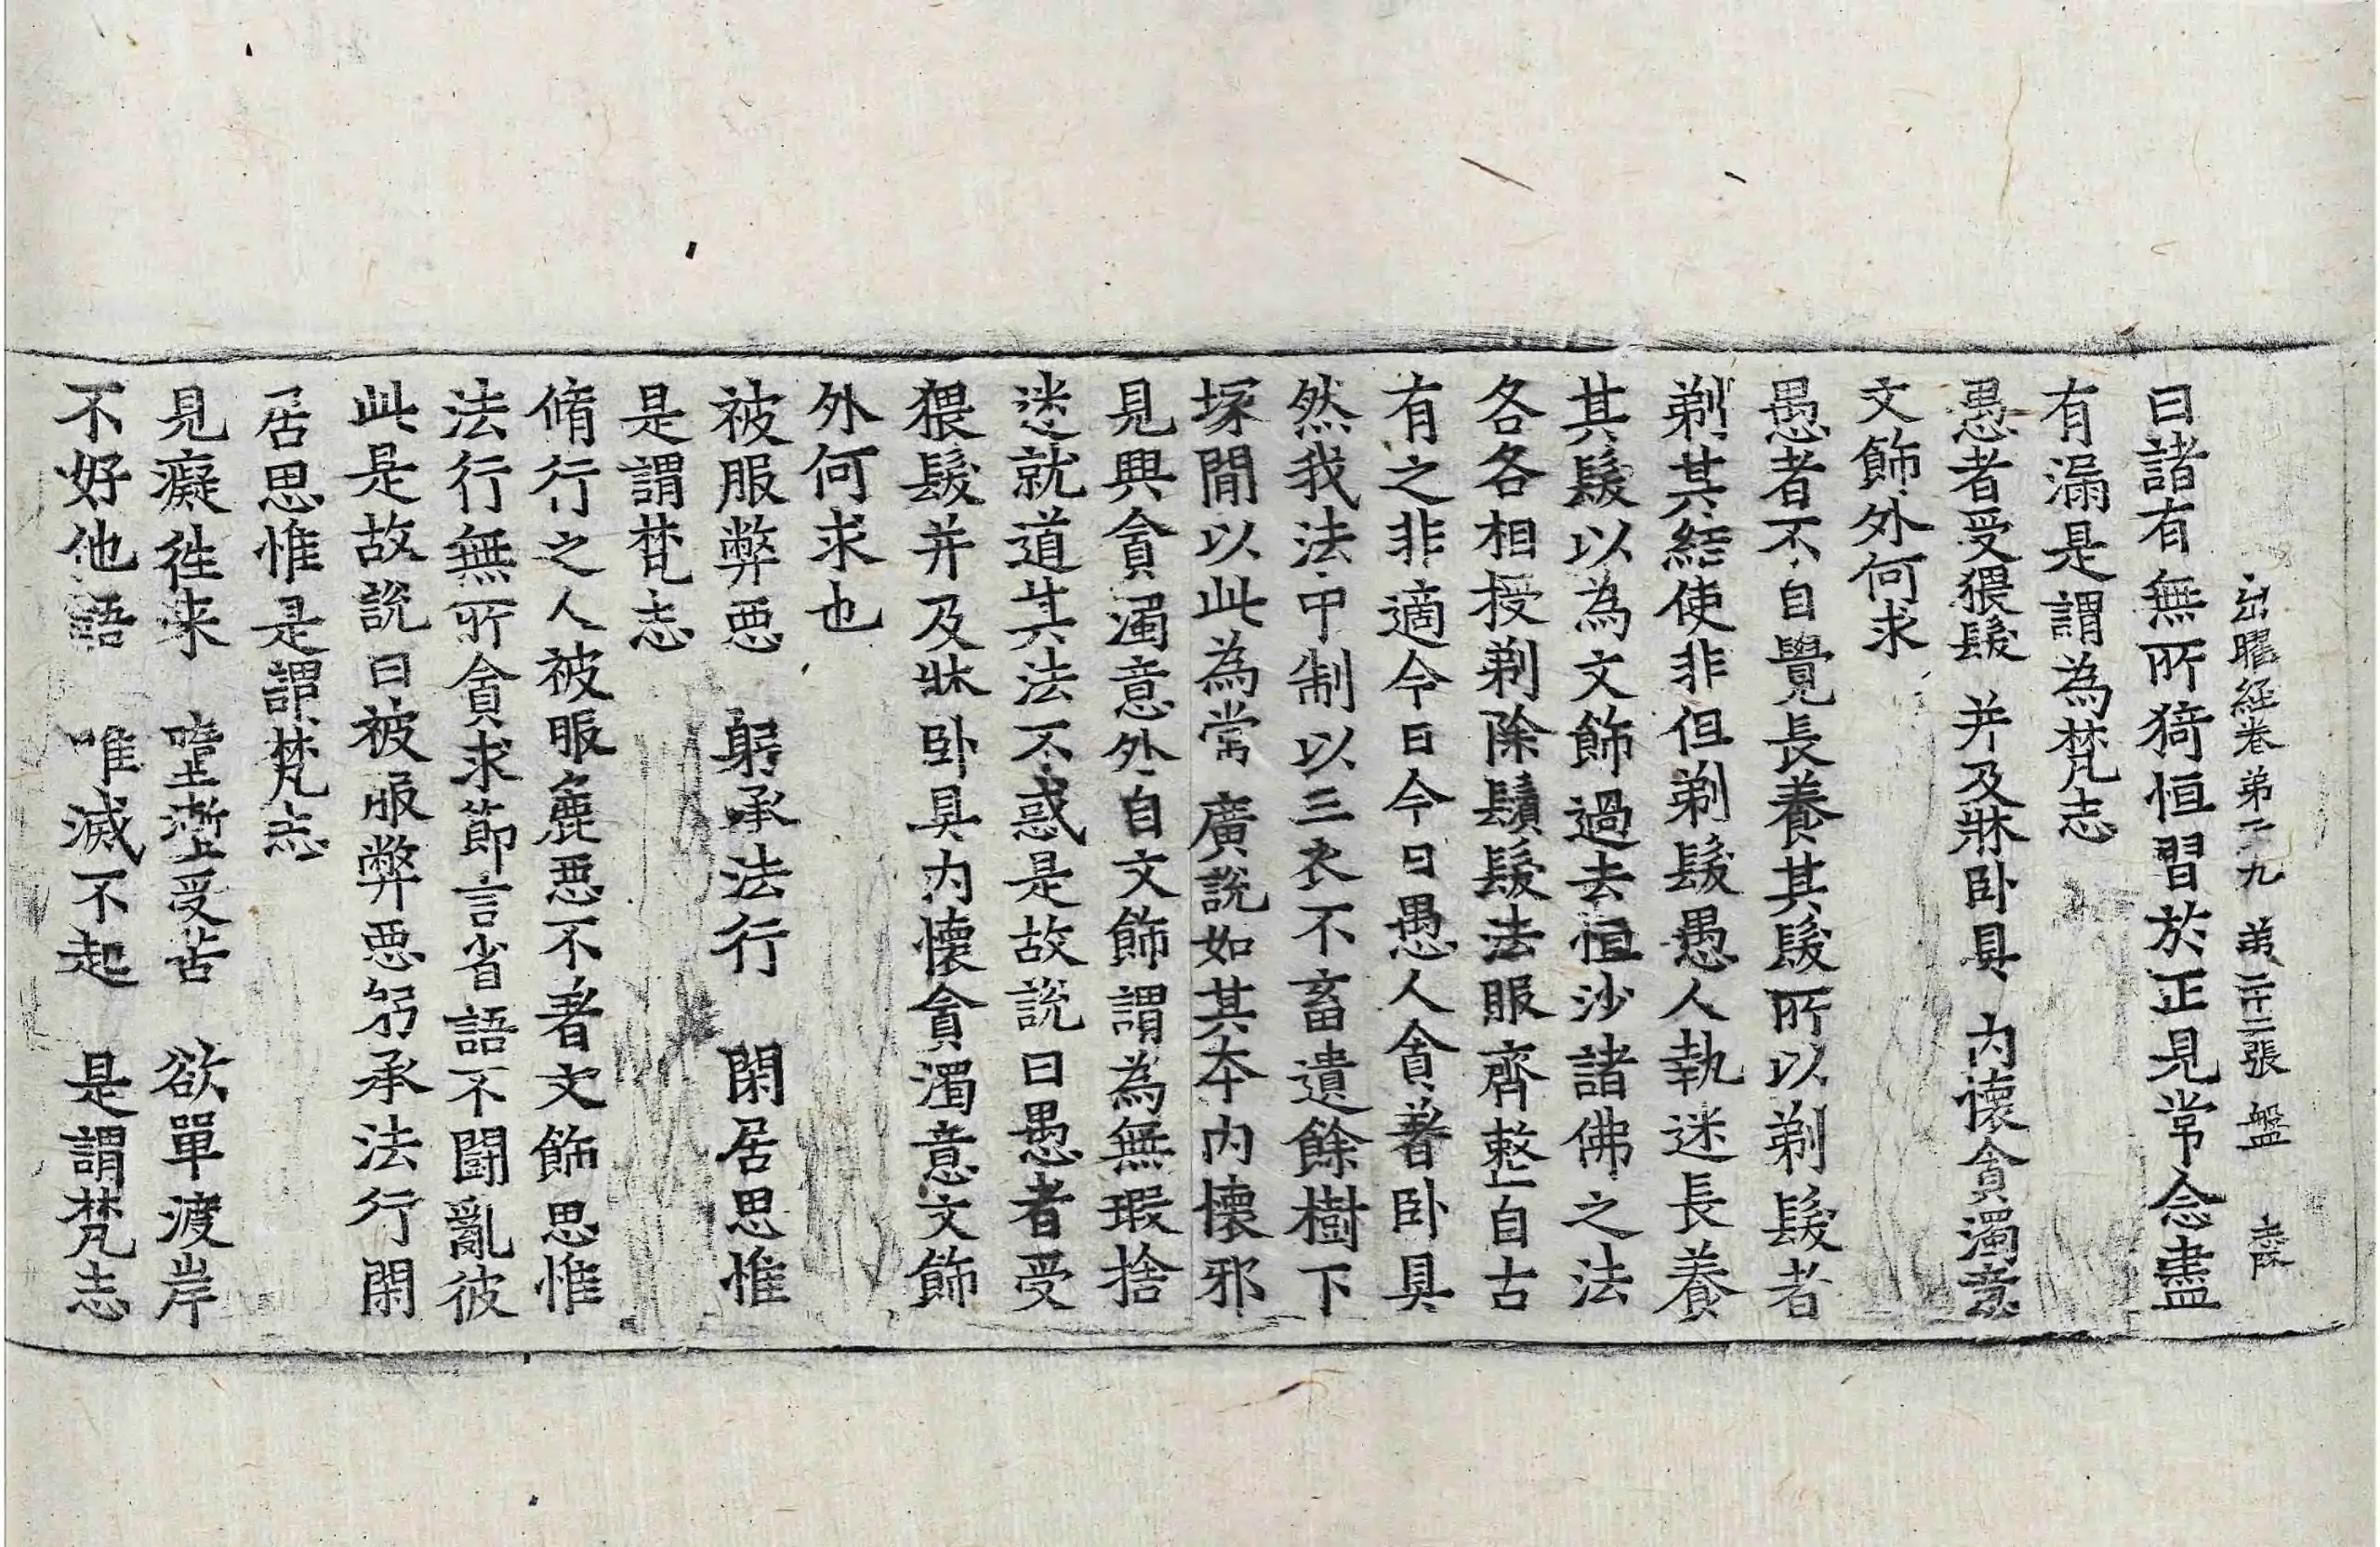 出曜経卷弟二九 弟二十二張 盤 陸
曰諸有無所猗恒習於正見常念盡
有漏是謂為梵志
愚者受猥髮 并及牀卧具 内懷貪濁意
文飾外何求
愚者不自覺長養其髮所以剃髮者
剃其結使非但剃髮愚人執迷長養
其髮以為文飾過去恒沙諸佛之法
各各相授剃除鬚髮法服齊整自古
有之非適今日今日愚人貪著卧具
然我法中制以三衣不畜遺餘樹下
塚間以此為常廣說如其本内懷邪
見興貪濁意外自文飾謂為無瑕捨
迷就道其法不惑是故說曰愚者受
猥髮并及牀卧具内懷貪濁意文飾
外何求也
被服弊惡 躬承法行 閑居思惟
是謂梵志
脩行之人被服麁惡不著文飾思惟
法行無所貪求節言省語不鬪亂彼
此是故說曰被服弊惡躬承法行閑
居思惟是謂梵志
見癡徃来 墮壍受苦 欲單渡岸
不好他語 唯滅不起 是謂梵志